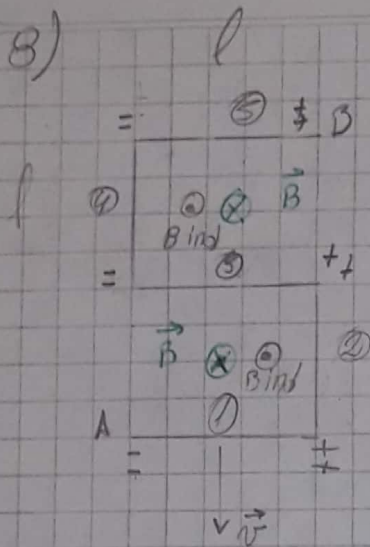 8) l
= ⑤ $ B
l ④ ⊙ ⊗ B⃗
B ind
= ③ ++
B⃗ ⊗ ⊙ ②
B ind
A ①
= ++
v⃗